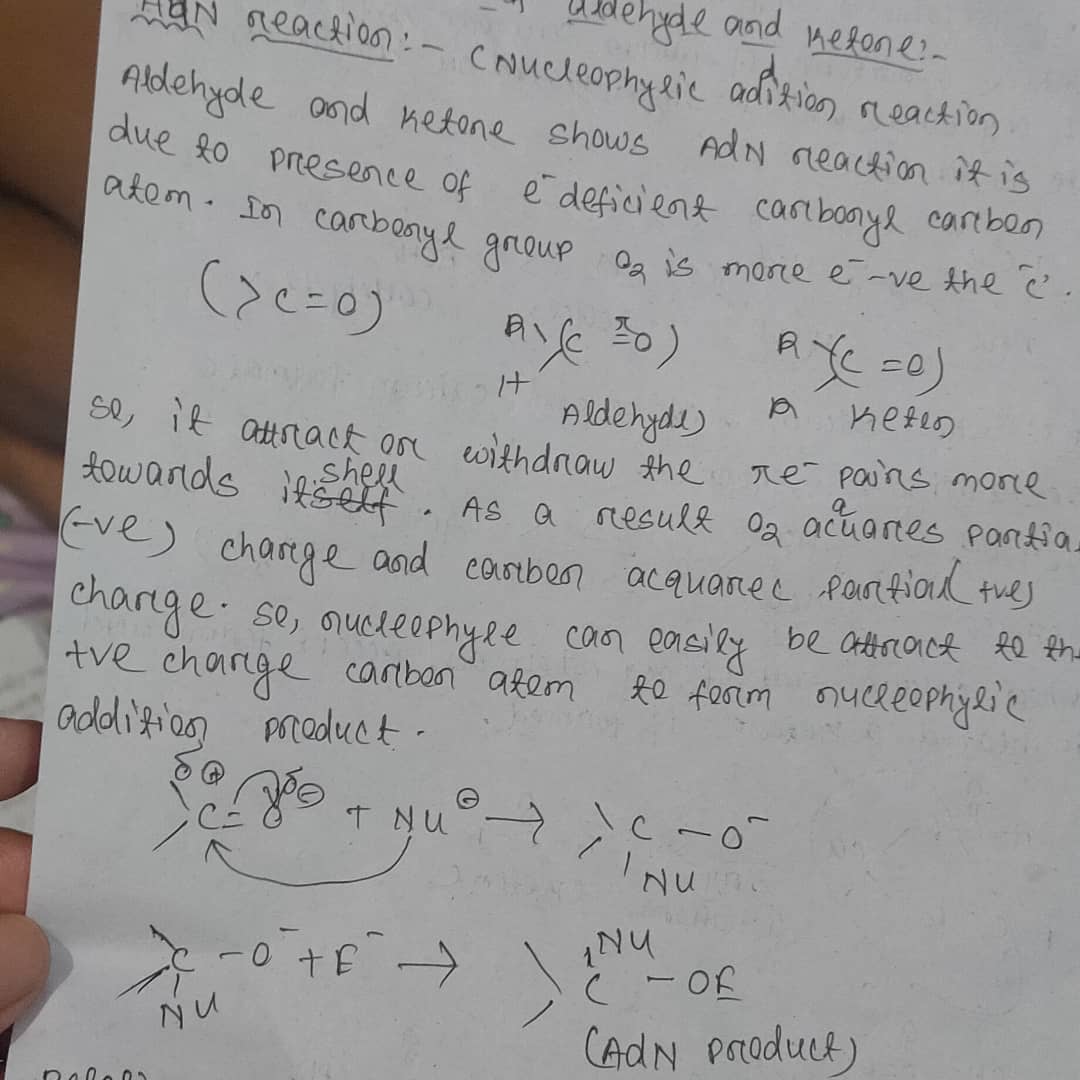 AdN reaction:- (Nucleophylic adition reaction
aldehyde and ketone:-
Aldehyde and ketone shows AdN reaction it is
due to presence of e⁻ deficient carbonyl carbon
atom. In carbonyl group O₂ is more e⁻-ve the 'c'.
(>C=O)
R\(C π= O) R (C =O)
H Aldehyde) R Keton
so, it attract or withdraw the πe⁻ pairs more
shell
towards itself. As a result O₂ acquares partial
(-ve) charge and carbon acquarec partial +ve)
charge. so, nucleophyle can easily be attract to
+ve charge carbon atom to form nucleophylic
addition product.
δ⊕ δ⊖
C=O + NU⊖ → C -O⁻
NU
C -O⁻ + E⁻ → C - OE
NU NU
(AdN product)